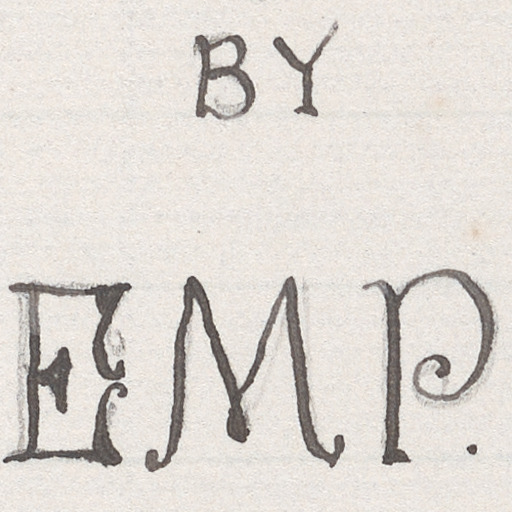 BY
EMP.